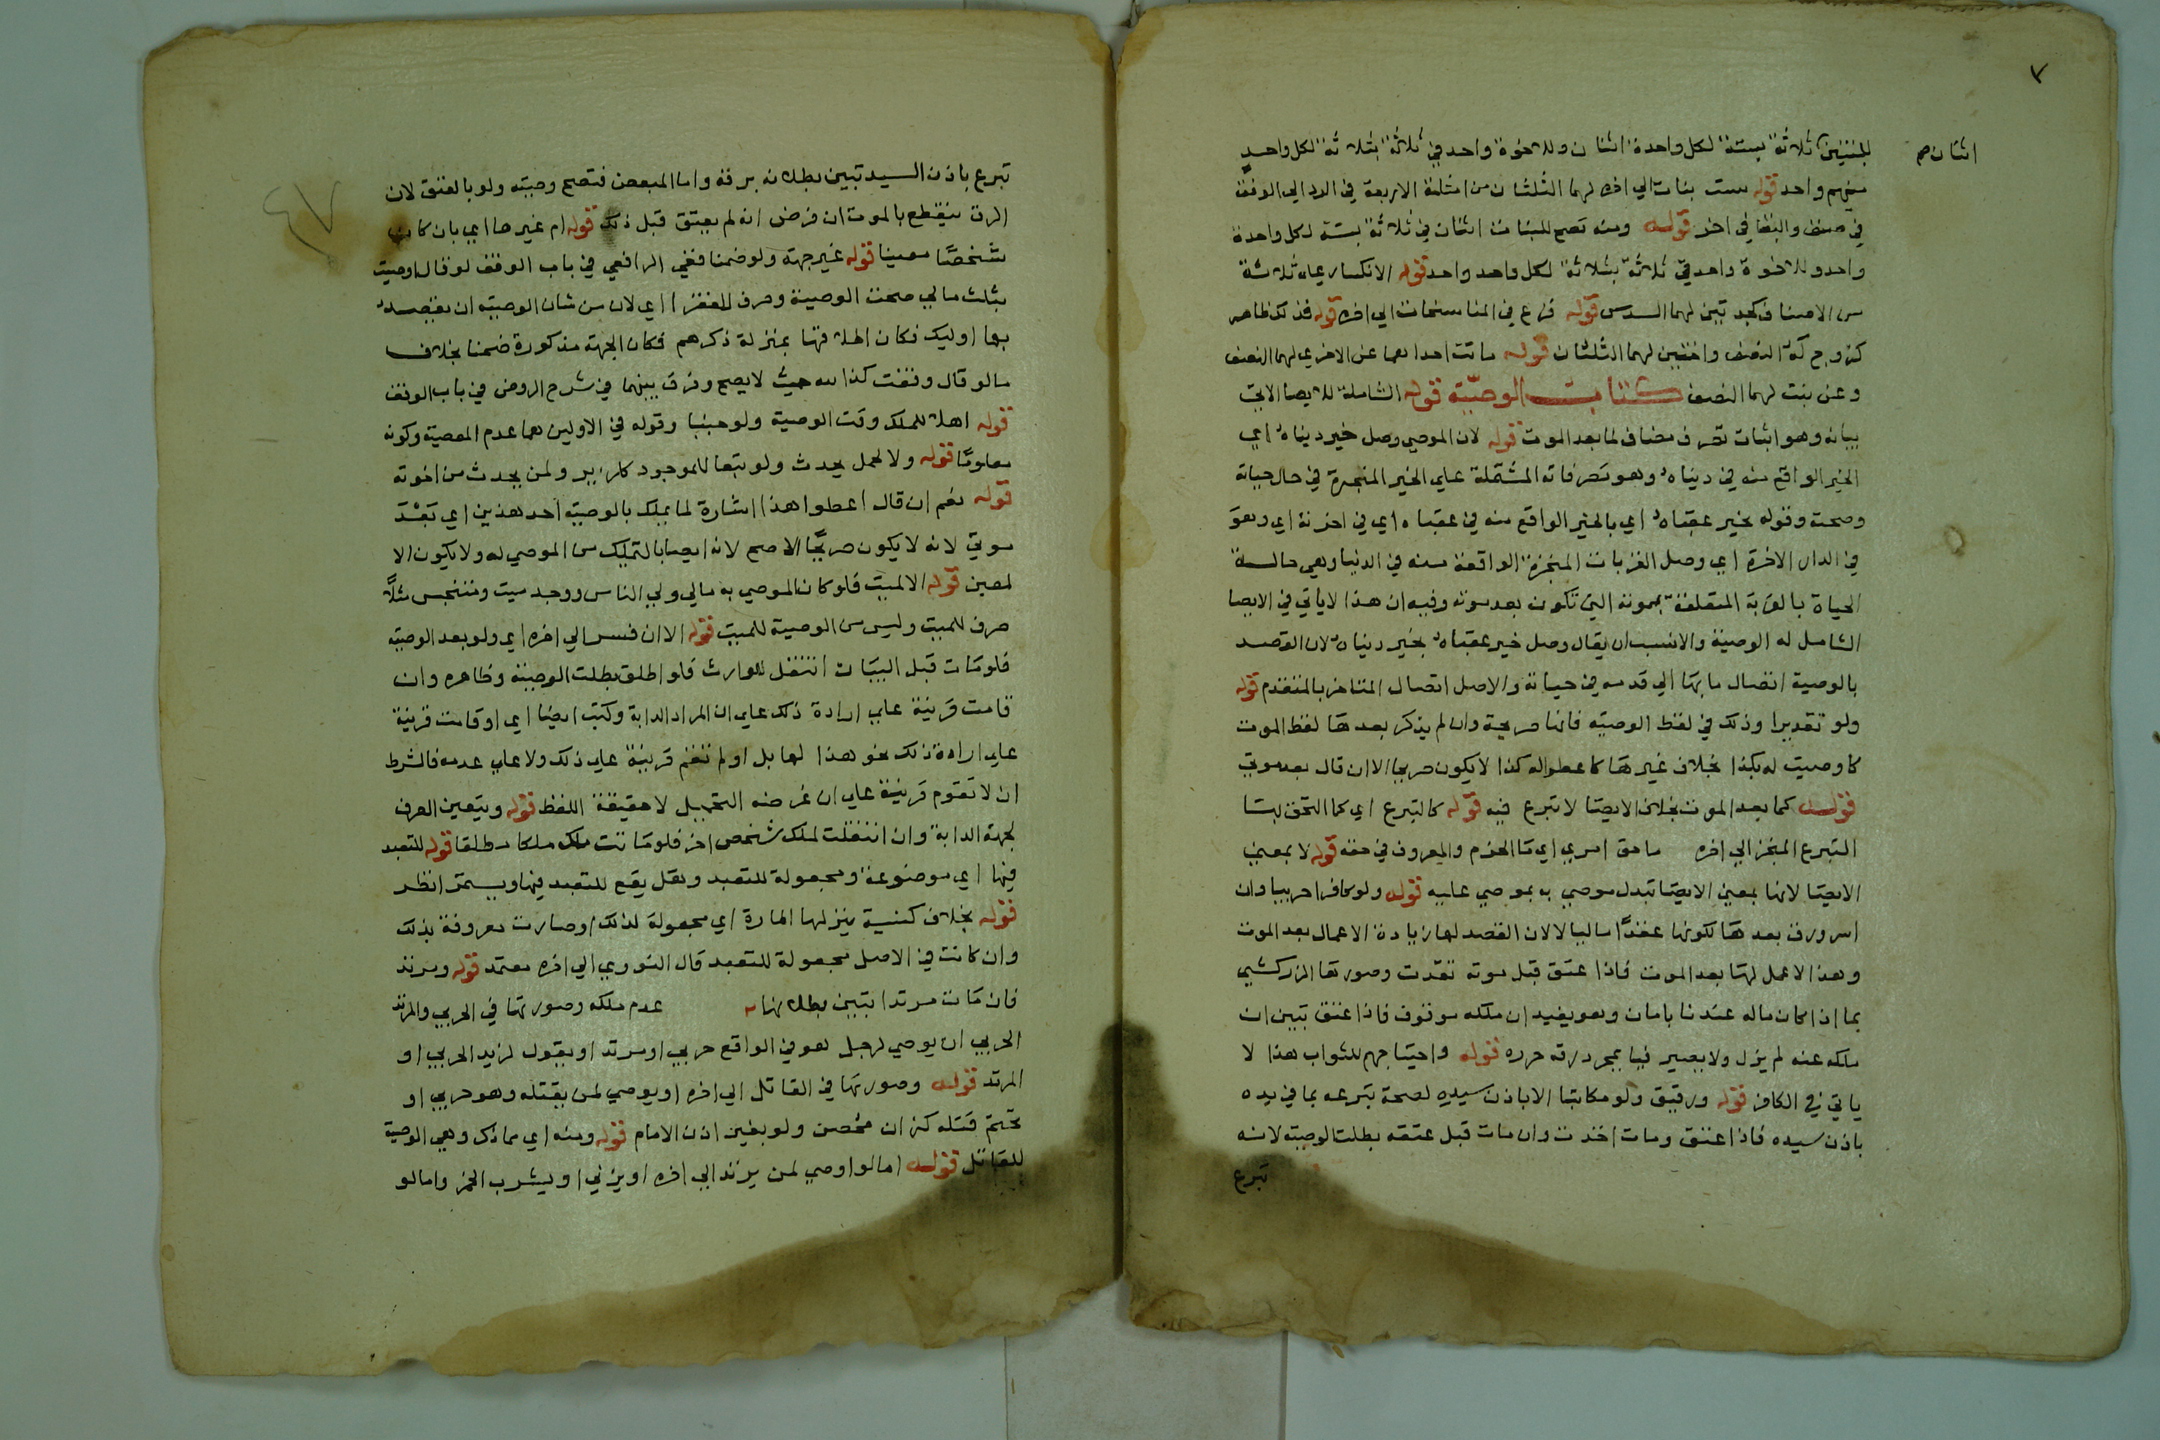 ٧
اثنان صح
للبنتين ثلاثة بستة لكل واحدة اثنان وللاخوة واحد في ثلاثة بثلاثة لكل واحد
منهم واحد قوله ست بنات الي اخره لهما الثلثان من امثلة الاربعة في الرد الي الوفق
في صنف والبقا في اخر قوله ومنه تصح للبنات اثنان في ثلاثة بستة لكل واحدة
واحد وللاخوة واحد في ثلاثة بثلاثة لكل واحد واحد قوله الانكسار علي ثلاثة
من الاصناف كجدتين لهما السدس قوله فرع في المناسخات الي اخره قوله فذلك ظاهر
كزوج له النصف واختين لهما الثلثان قوله ماتت احداهما عن الاخري لهما النصف
وعن بنت لها النصف كتاب الوصية قوله الشاملة للايصا الاتي
بيانه وهو اثبات تصرف مضاف لما بعد الموت قوله لان الموصي وصل خير دنياه اي
الخير الواقع منه في دنياه وهو تصرفاته المشتملة علي الخير المنجزة في حال حياته
وصحته وقوله بخير عقباه اي بالخير الواقع منه في عقباه اي في اخرته اي وهو
في الدار الاخرة اي وصل القربات المنجزة الواقعة منه في الدنيا وهي حالة
الحياة بالقربة المتعلقة بموته التي تكون بعد موته وفيه ان هذا لا ياتي في الايصا
الشامل له الوصية والانسب ان يقال وصل خير عقباه بخير دنياه لان القصد
بالوصية اتصال ما بها الي قدمه في حياته والاصل اتصال المتاخر بالمتقدم قوله
ولو تقديرا وذلك في لفظ الوصية فانها صريحة وان لم يذكر بعدها لفظ الموت
كاوصيت له بكذا بخلاف غيرها كاعطوا له كذا لا يكون صريحا الا ان قال بعد موتي
قوله كما بعد الموت بخلاف الايصا لا تبرع فيه قوله كالتبرع اي كما التحق بها
التبرع المنجز الي اخره ما حق امري اي ما الحزم والمعروف في حقه قوله لا بمعني
الايصا لانها بمعني الايصا تبدل موصي به بموصي عليه قوله ولو كافرا حربيا وان
اسر ورق بعدها لكونها عقدا ماليا لا لان القصد لها زيادة الاعمال بعد الموت
وهذا لا عمل له بعد الموت فاذا عتق قبل موته نفذت وصورها الزركشي
بما اذا كان ماله عندنا بامان وهو يفيد ان ملكه موقوف فاذا عتق تبين ان
ملكه عنه لم يزل ولا يصير فيا بمجرد رقه حرره قوله واحتياجهم للثواب هذا لا
ياتي في الكافر قوله ورقيق ولو مكاتبا الا باذن سيده لصحة تبرعه بما في يده
باذن سيده فاذا عتق ومات اخذت وان مات قبل عتقه بطلت الوصية لانه
تبرع
تبرع باذن السيد تبين بطلانه برقه واما المبعض فتصح وصيته ولو بالعتق لان
الرق ينقطع بالموت ان فرض انه لم يعتق قبل ذلك قوله ام غيرها اي بان كان
شخصا معينا قوله غير جهة ولو ضمنا ففي الرافعي في باب الوقف لو قال اوصيت
بثلث مالي صحت الوصية وصرف للفقرا اي لان من شان الوصية ان يقصد
بها اوليك فكان اطلاقها بمنزلة ذكرهم فكان الجهة مذكورة ضمنا بخلاف
ما لو قال وقفت كذا لله حيث لا يصح وفرق بينهما في شرح الروض في باب الوقف
قوله اهلا للملك وقت الوصية ولو جنينا وقوله في الاولين هما عدم المعصية وكونه
معلوما قوله ولا لحمل يحدث ولو تبعا للموجود ولمن يحدث من اخوته
قوله نعم ان قال اعطوا هذا اشارة لما يملك بالوصية احد هذين اي بعد
موتي لانه لا يكون صريحا الاصح لانه ايصا بالتمليك من الموصي له ولا يكون الا
لمعين قوله الا لميت فلو كان الموصي به مالي ولي الناس ووجد ميت ومتنجس مثلا
صرف للميت وليس من الوصية للميت قوله الا ان فسر الي اخره اي ولو بعد الوصية
فلو مات قبل البيان انتقل للوارث فلو اطلق بطلت الوصية وظاهره وان
قامت قرينة علي ارادة ذلك علي ان المراد الدابة وكتب ايضا اي او قامت قرينة
علي ارادة ذلك نحو هذا لها بل او لم تقم قرينة علي ذلك ولا علي عدمه فالشرط
ان لا تقوم قرينة علي ان غرضه التجميل لا حقيقة اللفظ قوله ويتعين الصرف
لجهة الدابة وان انتقلت لملك شخص اخر فلو ماتت ملك ملكا مطلقا قوله للتعبد
فيها اي موضوعة ومجعولة للتعبد وهل يقع للتعبد فيها ويستمر انظر
قوله بخلاف كنيسة ينزلها المارة اي مجعولة لذلك او صارت معروفة بذلك
وان كانت في الاصل مجعولة للتعبد قال النووي الي اخره معتمد قوله ومرتد
فان مات مرتدا تبين بطلانها عدم ملكه وصورتها في الحربي والمرتد
الحربي ان يوصي لرجل هو في الواقع حربي او مرتد او يقول لزيد الحربي او
المرتد قوله وصورتها في القاتل الي اخره او يوصي لمن يقتله وهو حربي او
تحتم قتله كزان محصن ولو بغير اذن الامام قوله ومنه اي مما ذكر وهي الوصية
للقاتل قوله اما لو اوصي لمن يرتد الي اخره او يزني او يشرب الخمر واما لو